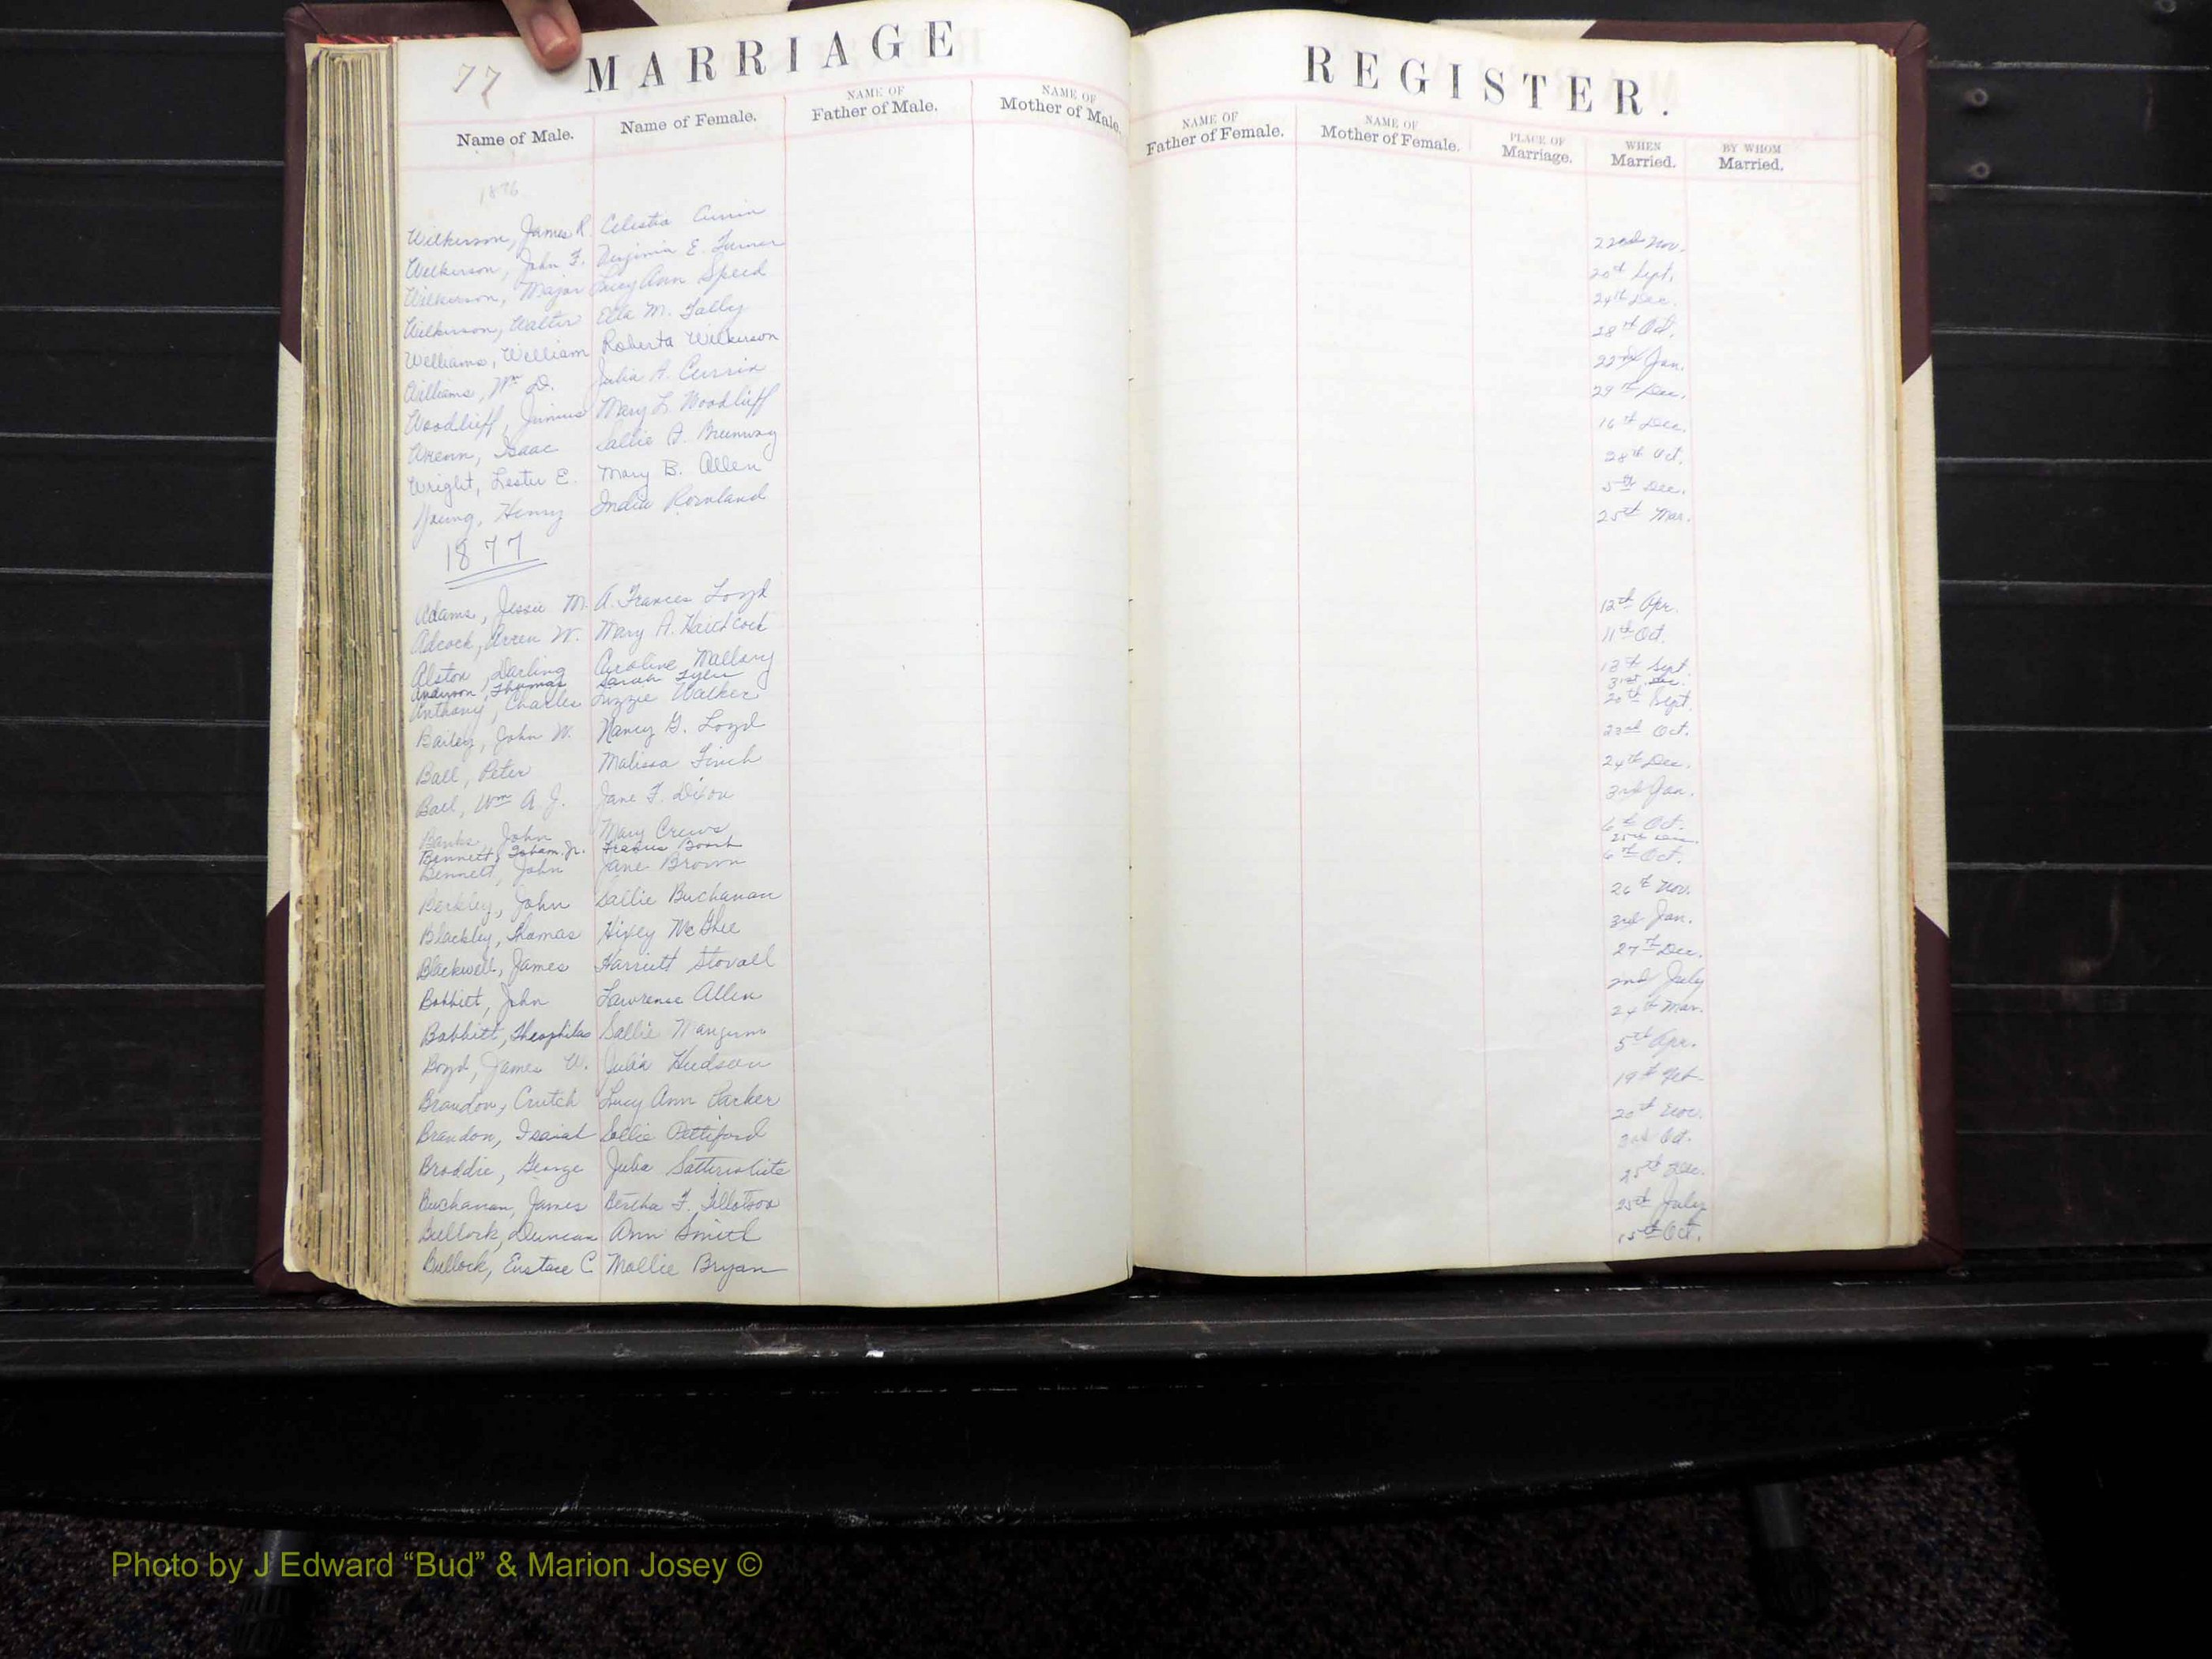 77 MARRIAGE REGISTER.
Name of Male. Name of Female. NAME OF Father of Male. NAME OF Mother of Male. NAME OF Father of Female. NAME OF Mother of Female. PLACE OF Marriage. WHEN Married. BY WHOM Married.
1876
Wilkerson, James R. Celestia Currin 22nd Nov.
Wilkerson, John F. Virginia E. Turner 20th Sept.
Wilkerson, Major Lucy Ann Speed 24th Dec.
Wilkerson, Walter Ella M. Tally 28th Oct.
Williams, William Roberta Wilkerson 22nd Jan.
Williams, Wm D. Julia A. Currin 29th Dec.
Woodlieff, Junius Mary L. Woodlieff 16th Dec.
Wrenn, Isaac Sallie A. 28th Oct.
Wright, Lester E. Mary B. Allen 5th Dec.
Young, Henry India Rowland 25th Mar.
1877
Adams, Jessie M. A. Frances Loyd 12th Apr.
Adcock, W. Mary A. Haithcock 11th Oct.
Alston, Darling Caroline Mallory 13th Sept.
Anderson, Thomas Sarah Tyler 31st Dec.
Anthony, Charles Lizzie Walker 20th Sept.
Bailey, John W. Nancy G. Loyd 23rd Oct.
Ball, Peter Malissa Finch 24th Dec.
Ball, Wm A. J. Jane F. Dixon 3rd Jan.
Banks, John Mary Crews 6th Oct.
Bennett, Isham Jr. Booth 25th
Bennett, John Jane Brown 6th Oct.
Berkley, John Sallie Buchanan 26th Nov.
Blackley, Thomas Hixey McGhee 3rd Jan.
Blackwell, James Harriett Stovall 27th Dec.
Bobbitt, John Lawrence Allen 2nd July
Bobbitt, Theophilas Sallie Mangum 24th Mar.
Boyd, James W. Julia Hudson 5th Apr.
Brandon, Crutch Lucy Ann Parker 19th Feb.
Brandon, Isaiah Sallie Pettiford 20th Nov.
Broddie, George Julia Satterwhite Oct.
Buchanan, James Bertha F. Tillotson 25th Dec.
Bullock, Duncan Ann Smith 25th July
Bullock, Eustace C. Mollie Bryan 15th Oct.
Photo by J Edward “Bud” & Marion Josey ©